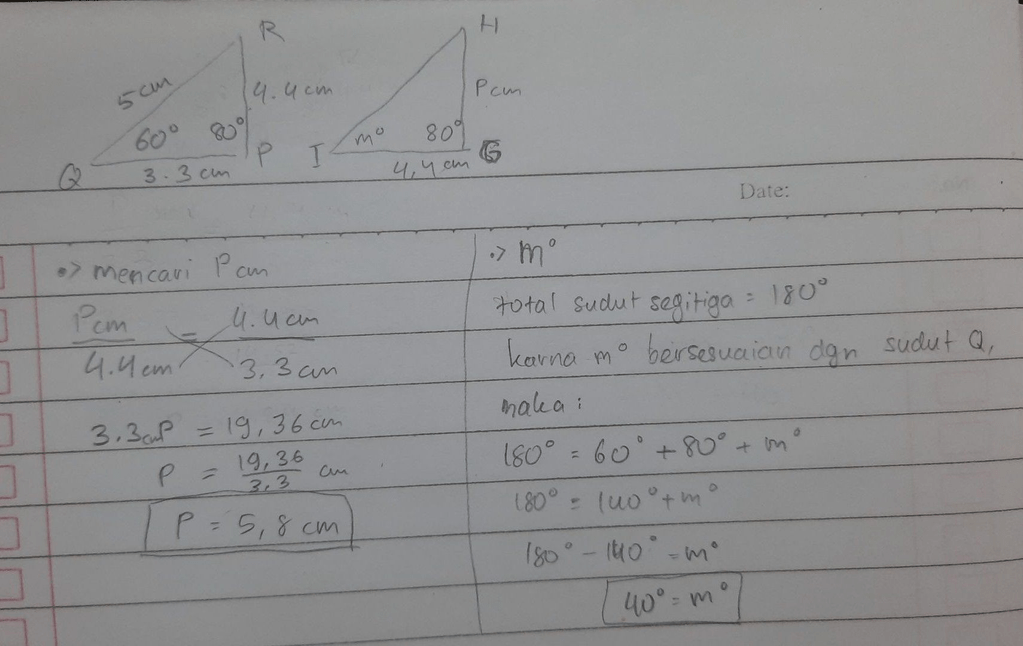 R
H
5 cm
4.4 cm
P cm
60°
80°
m°
80°
Q
3.3 cm
P
I
4,4 cm
G
Date:
•> mencari P cm
Pcm = 4.4 cm
4.4 cm 3,3 cm
3.3 cm P = 19,36 cm
P = 19,36 cm
3,3
P = 5,8 cm
•> m°
total sudut segitiga = 180°
karna m° bersesuaian dgn sudut Q,
maka :
180° = 60° + 80° + m°
180° = 140° + m°
180° - 140° = m°
40° = m°